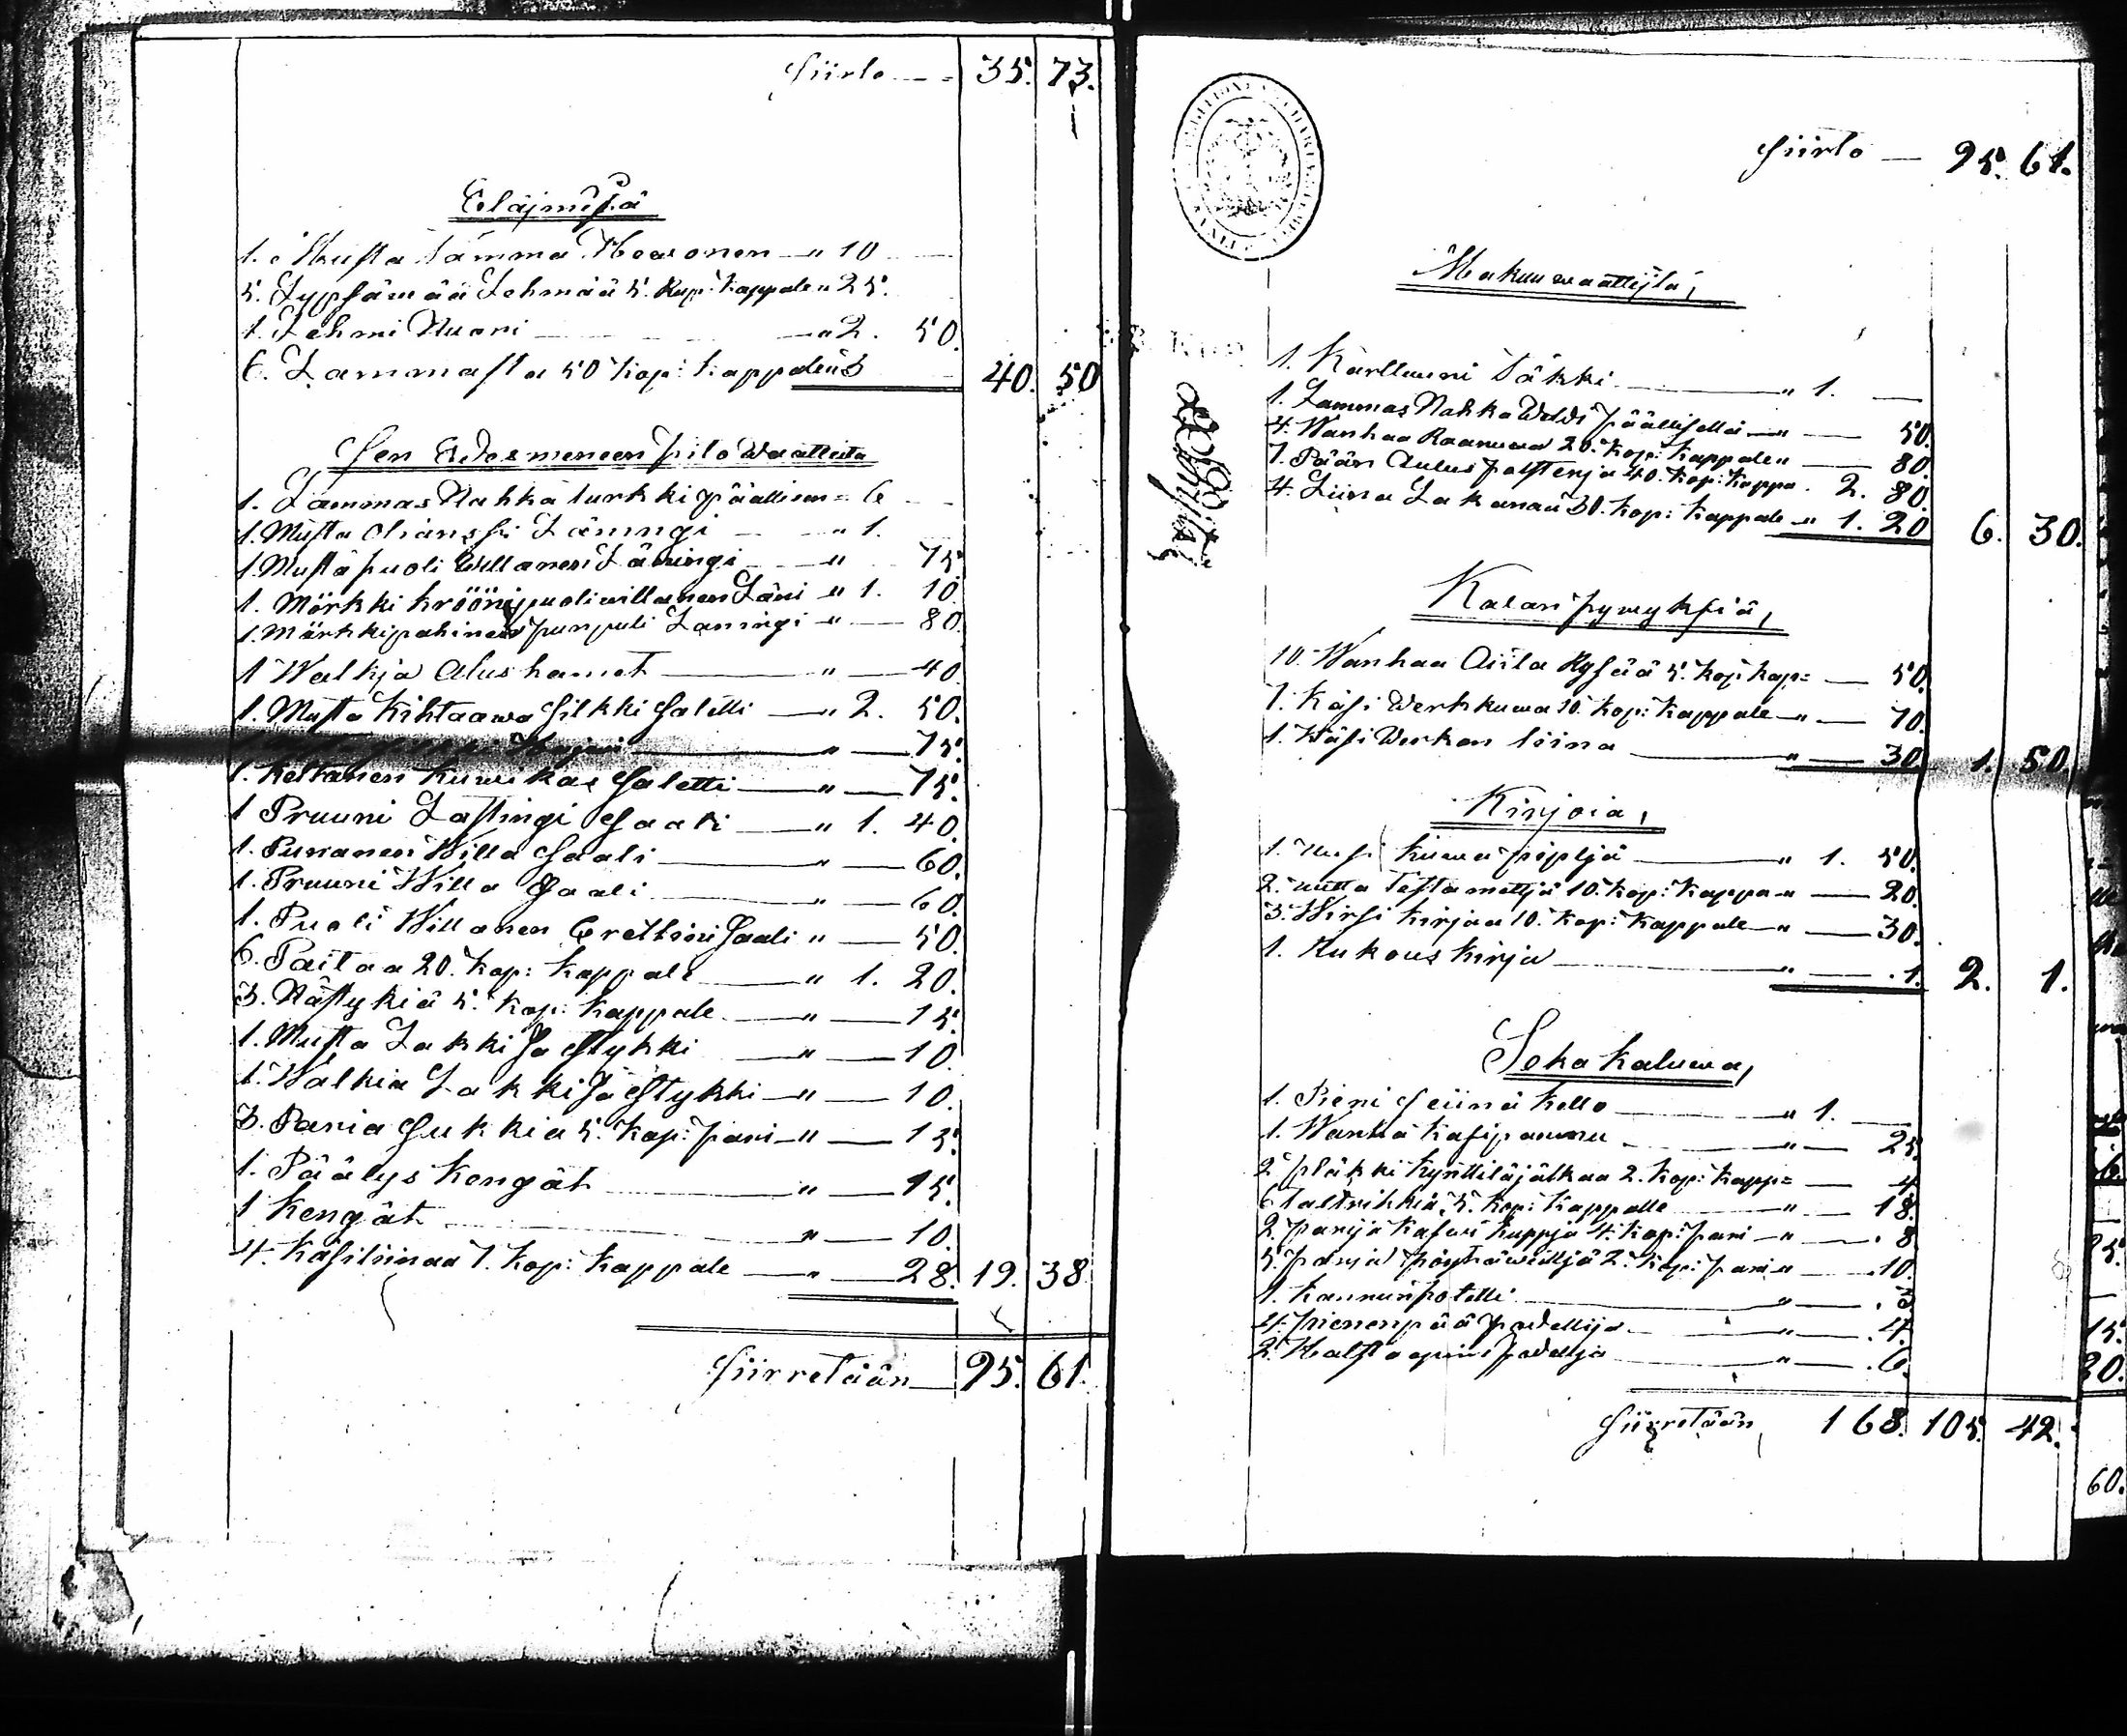 Siirto 35. 73.
Eläjmistä
1. Musta Tamma Hewonen " 10
5. Lypsäwää Lehmää 5. Rup: Kappale " 25.
1. Lehmi Nuori " 2. 50.
6. Lammasta 50 Kop: Kappale " 3 40. 50
Sen Edesmeneen pito Waatteita
1. Lammas Nahka turkki päällinen = 6
1. Musta Läningi " 1.
1. Musta puoli Willanen Läningi " 75
1. Mörkki krööni puoliwillanen Läni " 1. 10.
1. Mörkkipohinen punpuli Laningi " 80.
1 Walkja Alushamet " 40
1. Musta Kihtaawa Silkki Saletti " 2. 50.
" 75.
1. Keltanen Kuwikas Saletti " 75.
1 Pruuni Lastingi Saali " 1. 40.
1. Punanen Willa Saali " 60.
1. Pruuni Willa Saali " 60.
1. Puoli Willanen Saali " 50.
6. Paitaa 20. Kop: Kappale " 1. 20.
3. Nästykiä 5. Kop: Kappale " 15.
1. Musta Lakki Ja Stykki " 10.
1. Walkia Lakki Ja Stykki " 10.
3. Paria Sukkia 5. Kop: pari " 15.
1. Päälys Kengät " 15.
1 Kengät " 10.
4. Käsiliinaa 7. Kop: Kappale " 28. 19. 38
Siirretään 95. 61.
Siirto 95. 61.
Makuu waattejta,
1. Karlluuni Täkki " 1.
1. Lammas Nahka Weldi päällisellä " 50.
4. Wanhaa Raanuwa 20. Kop: Kappale " 80.
7. Pään Aulus polsterja 40. Kop: Kappa. 2. 80.
4. Liina Lakanaa 30. Kop: Kappale " 1. 20 6. 30.
Kalan pywyksiä,
10. Wanhaa Rysää 5. Kop: Kap= 50.
7. Käsi Werkkuwa 10. Kop: Kappale " 70.
1. Käsi Werkon liina " 30. 1. 50.
Kirjoia,
1. Uusi Kuwa pipljä " 1. 50.
2. uutta Testamettjä 10. Kop: Kappa " 20.
3. Wirsi Kirjaa 10. Kop: Kappale " 30.
1. Rukous Kirja " 1. 2. 1.
Seka Kaluwa,
1. Pieni Seiinä Kello " 1.
1. Wanha Kasipannu " 25.
2. pläkki Kynttiläjälkaa 2. Kop: Kapp= 4
6 taltrikkiä 3. Kop: Kappalle " 18.
2. parija Kafwi Kuppja 4. Kop: Pari " 8
5. parja pöytäweittjä 2. Kop: pari " 10.
1. Kannunpotelli " 3
4. pienenpää podellija " 4.
2. podellja " 6.
Siirretään 168. 105. 42.